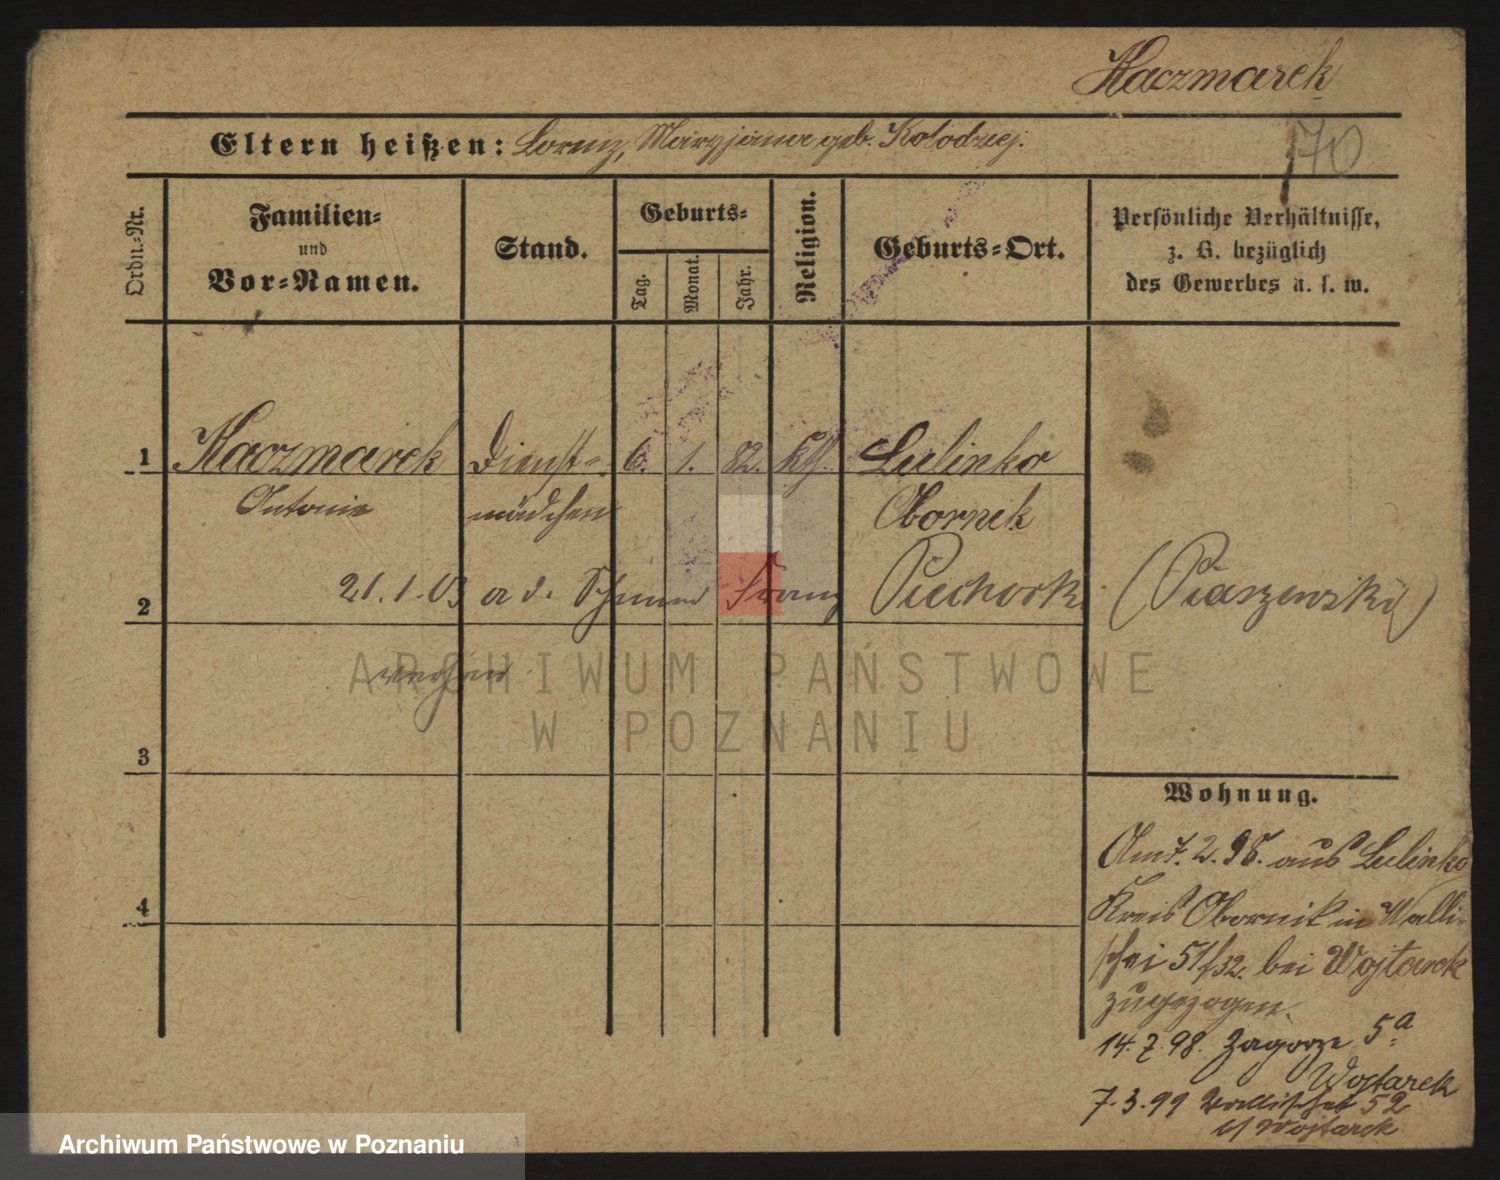 Kaczmarek
Eltern heißen: Lorenz, Maryjana geb. Kolodziej.
70
Ordn.-Nr.
Familien- und Vor-Namen.
Stand.
Geburts-
Tag.
Monat.
Jahr.
Religion.
Geburts-Ort.
Persönliche Verhältnisse,
z. B. bezüglich
des Gewerbes u. s. w.
1 Kaczmarek Dienst- 6. 1. 82. kth. Lulinko
Antonie mädchen Obornik
2 21.1.03 a d. Schmied Franz Piechocki (Piaszewski)
ARCHIWUM PAŃSTWOWE
W POZNANIU
3
4
Wohnung.
Am 7. 2. 98. aus Lulinko
Kreis Obornik in Walli-
schei 51/52. bei Wojtarek
zugezogen.
14. 7. 98. Zagorze 5a
Wojtarek
7. 3. 99 Wallischei 52
b/ Wojtarek
Archiwum Państwowe w Poznaniu